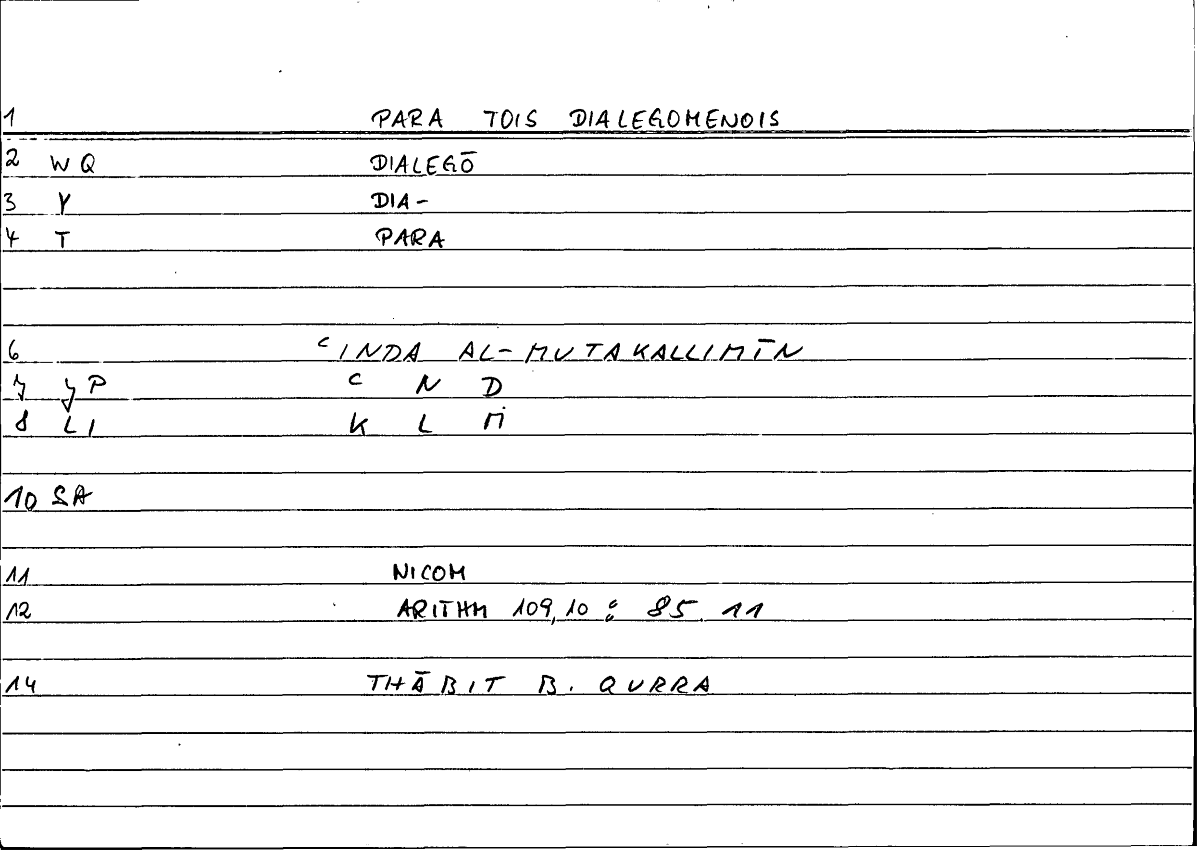 1 PARA TOIS DIALEGOMENOIS
2 WQ DIALEGŌ
3 Y DIA-
4 T PARA
6 ʿINDA AL-MUTAKALLIMĪN
7 YP ʿ N D
8 LI K L M
10 SA
11 NICOM
12 ARITHM 109,10 : 85. 11
14 THĀBIT B. QURRA